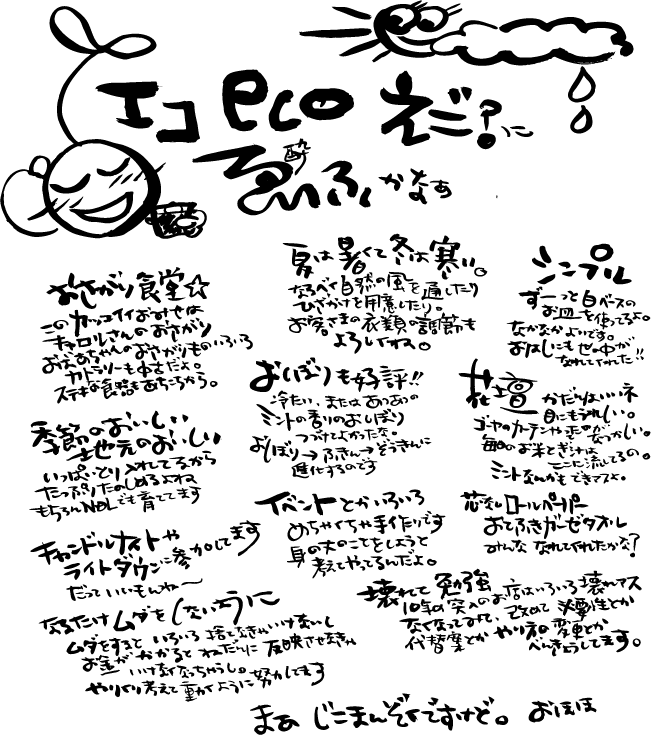 エコ eco えご?に
酔
ゑいふ かなぁ
おさがり食堂☆
このカッコイイおみせは
キャロルさんのおさがり
おばあちゃんのおさがりものいろいろ
カトラリーも中古だよ。
ステキな食器もあちこちから。
季節のおいしい
地元のおいしい
いっぱいとり入れてるから
たっぷりたのしめるよね
もちろんNOLでも育ててます
キャンドルナイトや
ライトダウンに参加してます
だっていいもんね〜
なるたけムダを(しない方)に
ムダをすると いろいろ捨てなきゃいけないし
お金がかかるとねだんに反映させなきゃ
いけなくなっちゃうし。
やりくり考えて動くように努力してます
夏は暑くて冬は寒い。
なるべく自然の風を通したり
ひざかけを用意したり。
お客さまの衣類の調節も
よろしくね。
おしぼりも好評!!
冷たい、またはあつあつの
ミントの香りのおしぼり
つづけてよかったな。
おしぼり→ふきん→ぞうきんに
進化するのです
イベントとかいろいろ
めちゃくちゃ手作りです
身の丈のことをしようと
考えてやってるんだよ。
シンプル
ずーっと白ベースの
お皿を使ってるよ。
なかなかよいです。
おはしにも世の中が
なれてくれた!!
花壇 かだんはいいネ
目にもうれしい。
ゴーヤのカーテンや
毎日のお米とぎ汁は
ここに流してるの。
ミントなんかもできてマスよ。
芯なしロールペーパー
おてふきガーゼタオル
みんな なれてくれたかな?
壊れて勉強
10年の突入のお店はいろいろ壊れマス
なくなってみて、改めて 必要性とか
代替案とか やり方の変更とか
べんきょうしてます。
まぁ じこまんぞくですけど。 おほほ